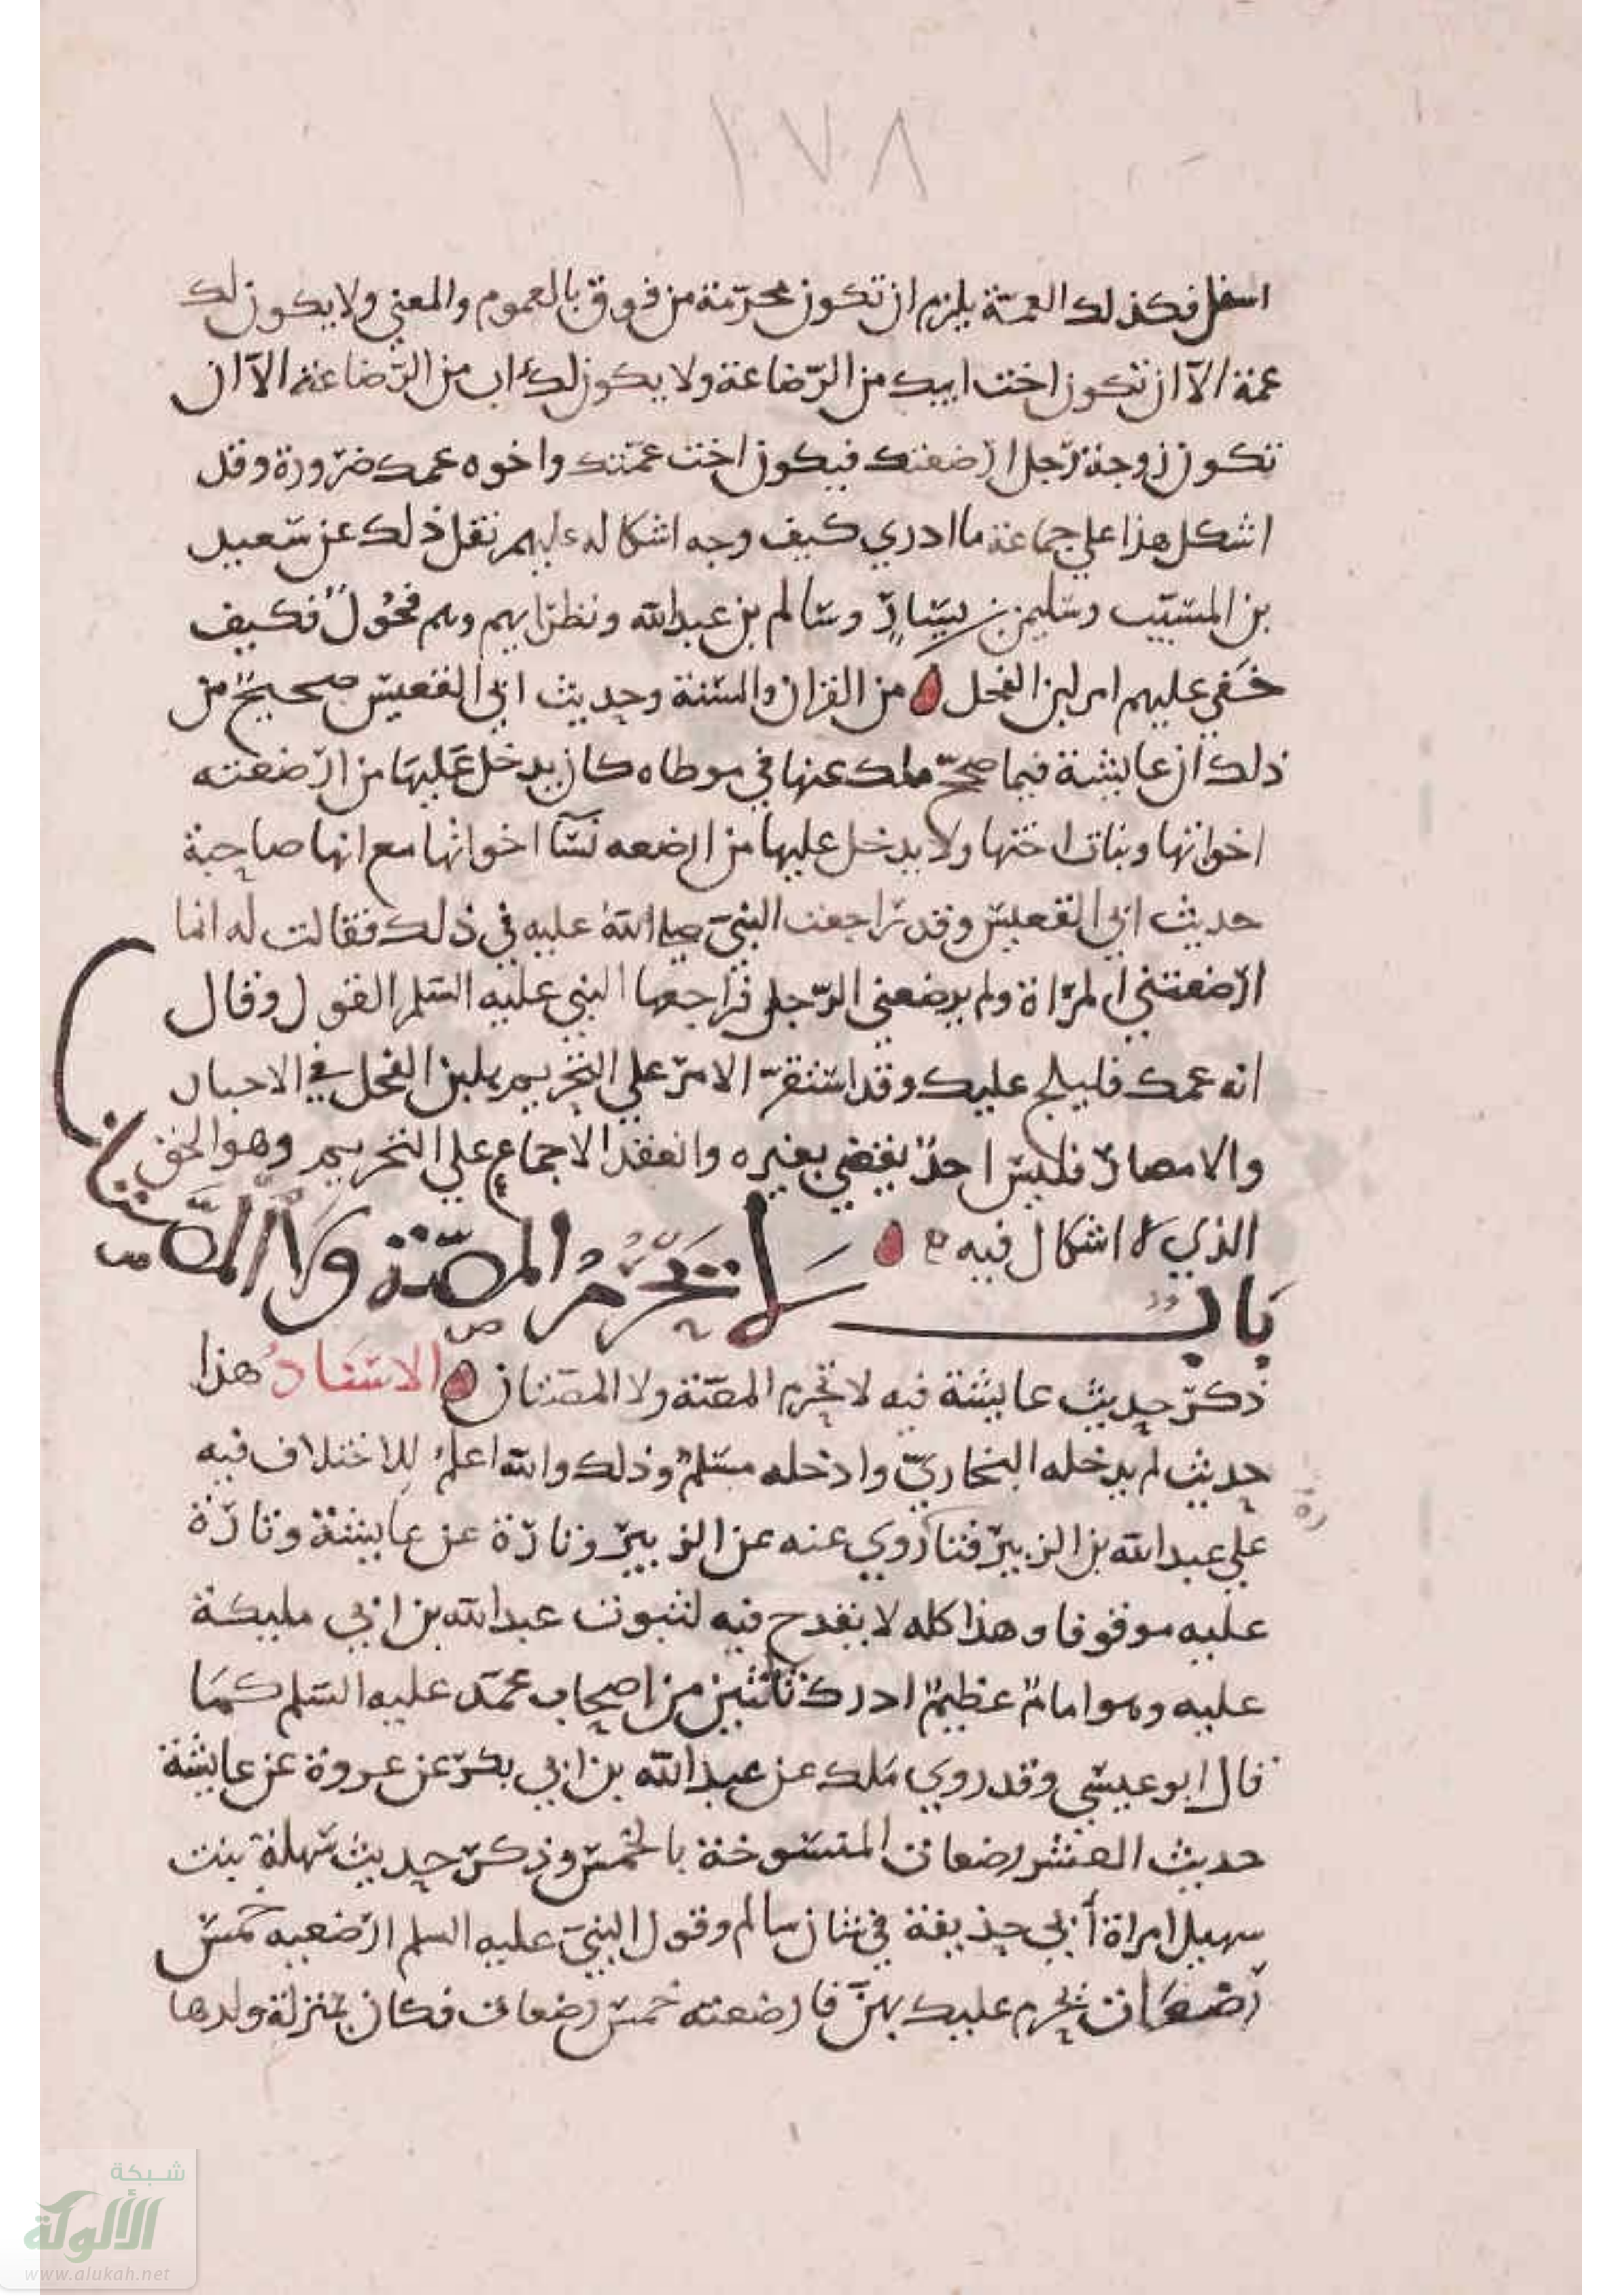 ١٧٨
اسفل فكذلك العمة يلزم ان تكون محرمة من فوق بالعموم والمعني ولا يكون لك
عمة الا ان تكون اخت ابيك من الرضاعة ولا يكون لك اب من الرضاعة الا ان
تكون زوجة رجل ارضعتك فيكون اخت عمتك واخوه عمك ضرورة وقد
اشكل هذا علي جماعة ما ادري كيف وجه اشكاله عليهم نقل ذلك عن سعيد
بن المسيب وسليمن بن يسار وسالم بن عبد الله ونظرايهم وهم فحول فكيف
خفي عليهم امر لبن الفحل من القران والسنة وحديث ابي القعيس صحيح من
ذلك ان عايشة فيما صح ملك عنها في موطاه كان يدخل عليها من ارضعته
اخواتها وبنات اختها ولا يدخل عليها من ارضعه نسا اخوانها مع انها صاحبة
حديث ابي القعيس وقد راجعت النبي صلى الله عليه في ذلك فقالت له انما
ارضعتني المراة ولم يرضعني الرجل فراجعها النبي عليه السلم القول وقال
انه عمك فليلج عليك وقد استقر الامر علي التحريم بلبن الفحل في الاحبار
والامصار فليس احد يقضي بغيره وانعقد الاجماع علي التحريم وهو الحق
الذي لا اشكال فيه
باب لا تحرم المصة ولا المصتان
ذكر حديث عايشة فيه لا تحرم المصة ولا المصتان الاسناد هذا
حديث لم يدخله البخاري وادخله مسلم وذلك والله اعلم للاختلاف فيه
علي عبد الله بن الزبير فتارة روي عنه عن الزبير وتارة عن عايشة وتارة
عليه موقوفا وهذا كله لا يقدح فيه لثبوت عبد الله بن ابي مليكة
عليه وهو امام عظيم ادرك ثلثين من اصحاب محمد عليه السلم كما
قال ابو عيسي وقد روي ملك عن عبد الله بن ابي بكر عن عروة عن عايشة
حديث العشر رضعات المنسوخة بالخمس وذكر حديث سهلة بنت
سهيل امراة أبي حذيفة في شان سالم وقول النبي عليه السلم ارضعيه خمس
رضعات يحرم عليك بهن فارضعته خمس رضعات فكان بمنزلة ولدها
شبكة
الألوكة
www.alukah.net